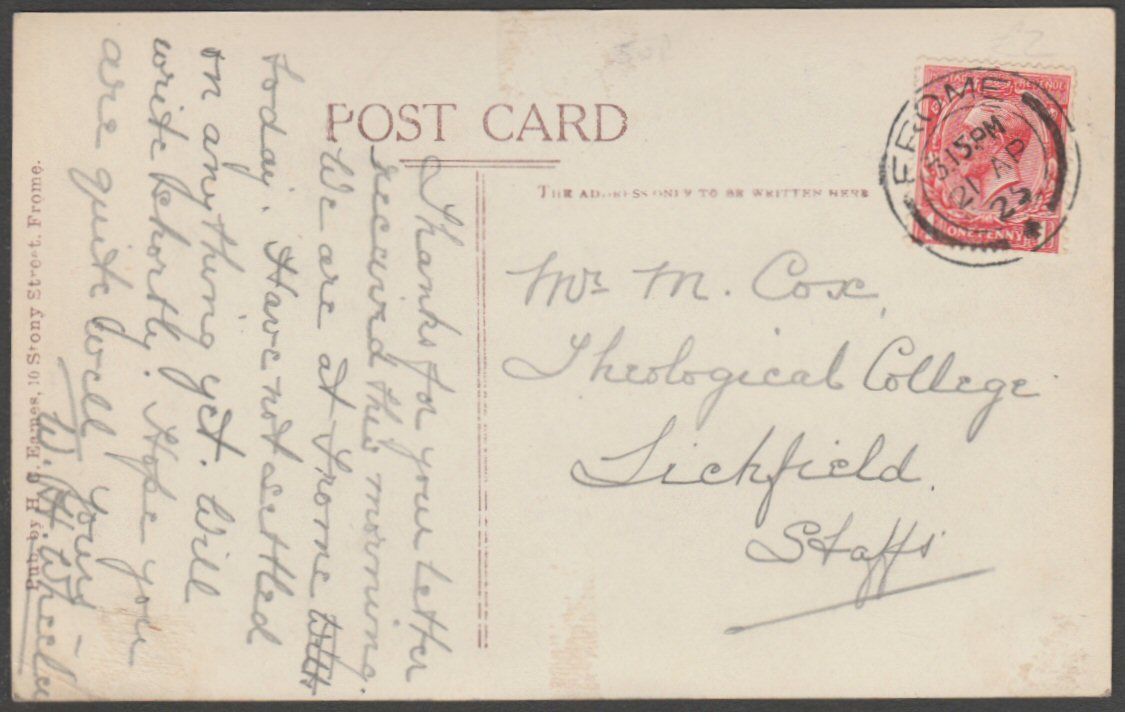 POST CARD
THE ADDRESS ONLY TO BE WRITTEN HERE
FROME
3.15 PM
21 AP
25
POSTAGE REVENUE
ONE PENNY
£2
Thanks for your letter
received this morning.
We are at Frome
today. Have not settled
on anything yet. Will
write shortly. Hope you
are quite well yours
W. H. Wheeler
Mr M. Cox,
Theological College
Lichfield.
Staffs
Pub. by H. C. Eames, 10 Stony Street, Frome.